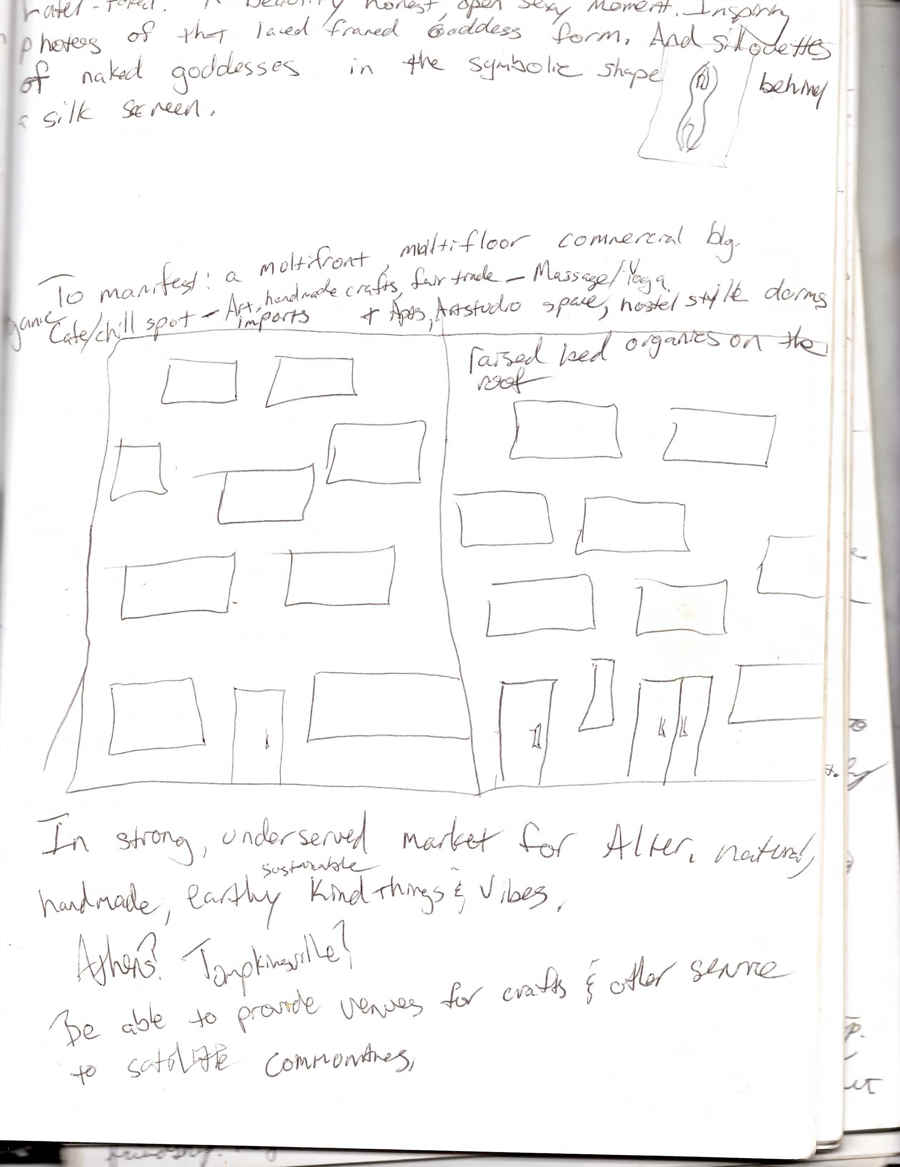 honest, open sexy moment. Inspiring
photoes of that laced framed Goddess form. And silodettes
of naked goddesses in the symbolic shape behind
a silk screen.
To manifest: a moltifront, multifloor commercial blg.
game
Cafe/chill spot - Art, handmade crafts, fair trade - Massage/Yoga
imports + Apts, Artstudio space, hostel style dorms
raised bed organics on the
roof
In strong, underserved market for Alter. natural,
sustainable
handmade, earthy Kind things & Vibes.
Athens? Tompkinsville?
Be able to provide venues for crafts & other service
to communities.